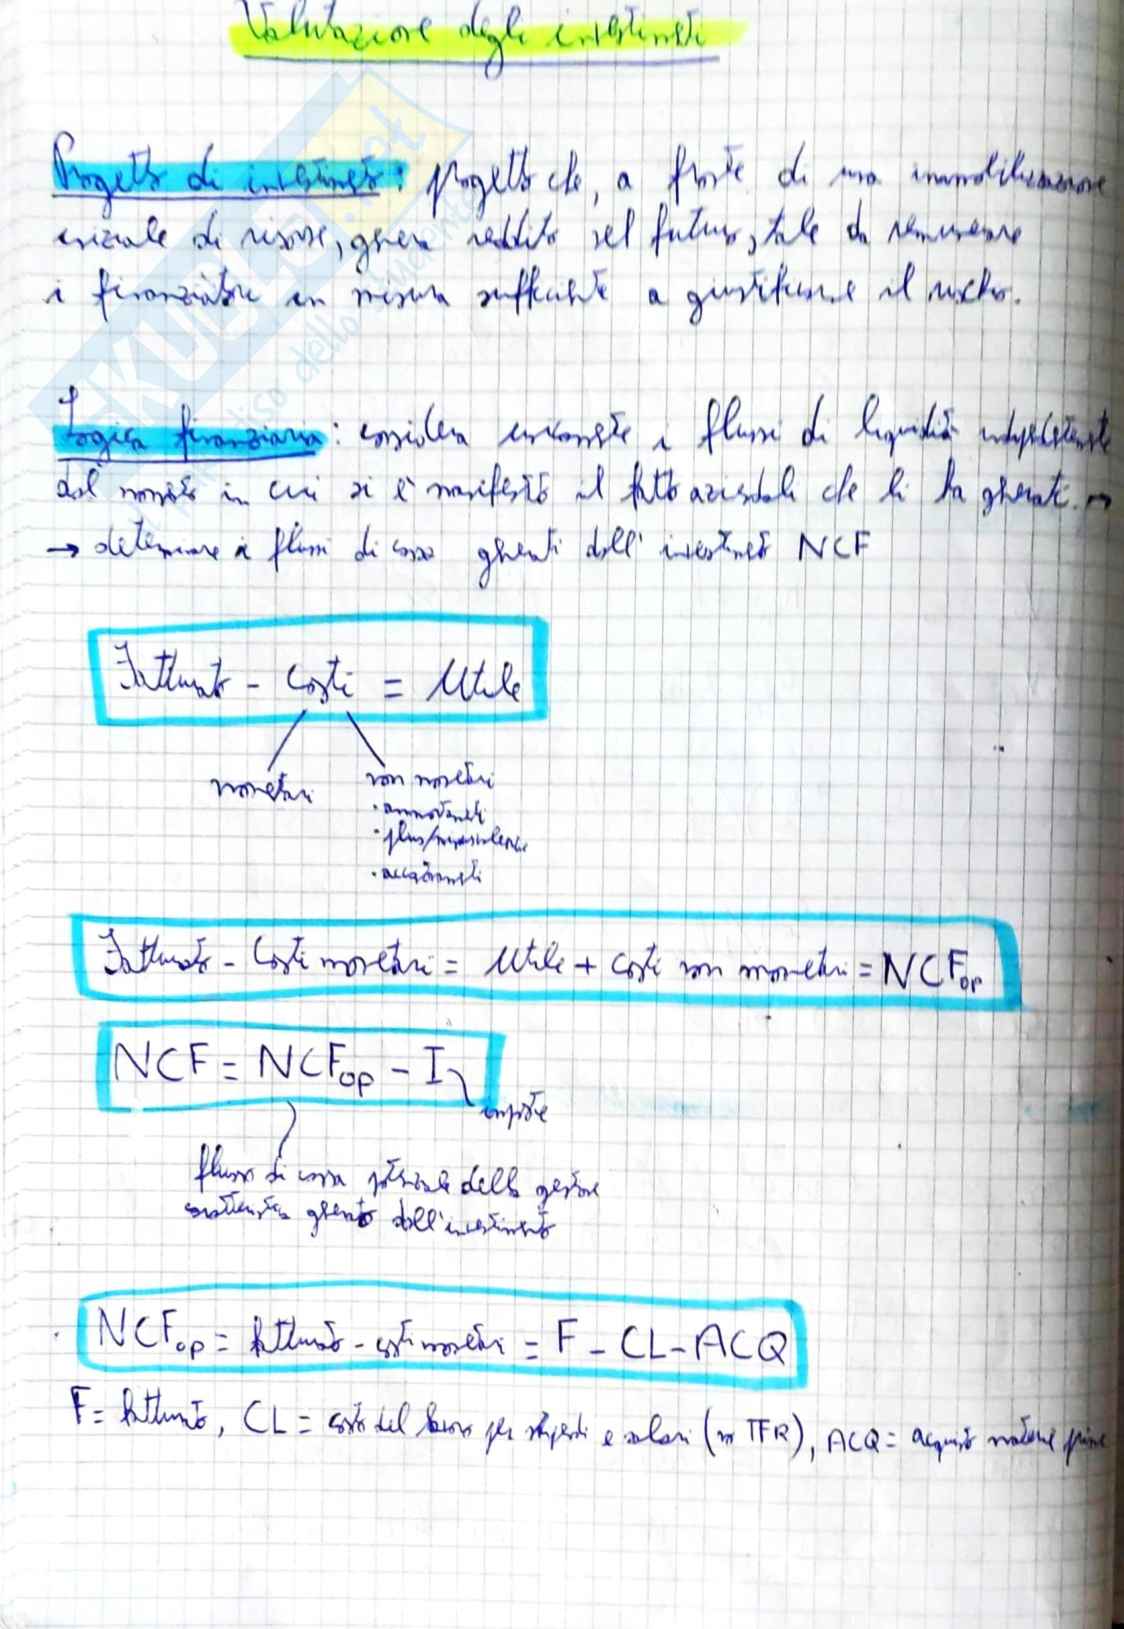 Valutazione degli investimenti
Progetto di investimento: progetto che, a fronte di una immobilizzazione
iniziale di risorse, genera reddito nel futuro, tale da remunerare
i finanziatori in misura sufficiente a giustificare il rischio.
Logica finanziaria: considera unicamente i flussi di liquidità indipendentemente
dal momento in cui si è manifestato il fatto aziendale che li ha generati. →
→ determinare i flussi di cassa generati dall'investimento NCF
Fatturato - Costi = Utile
monetari
non monetari
• ammortamenti
• plus/minusvalenze
• accantonamenti
Fatturato - Costi monetari = Utile + costi non monetari = NCFop
NCF = NCFop - I
imposte
flusso di cassa potenziale della gestione
caratteristica generato dall'investimento
NCFop = fatturato - costi monetari = F - CL - ACQ
F = fatturato, CL = costo del lavoro per stipendi e salari (no TFR), ACQ = acquisto materie prime
SKUOLA.net
paradiso dello studente